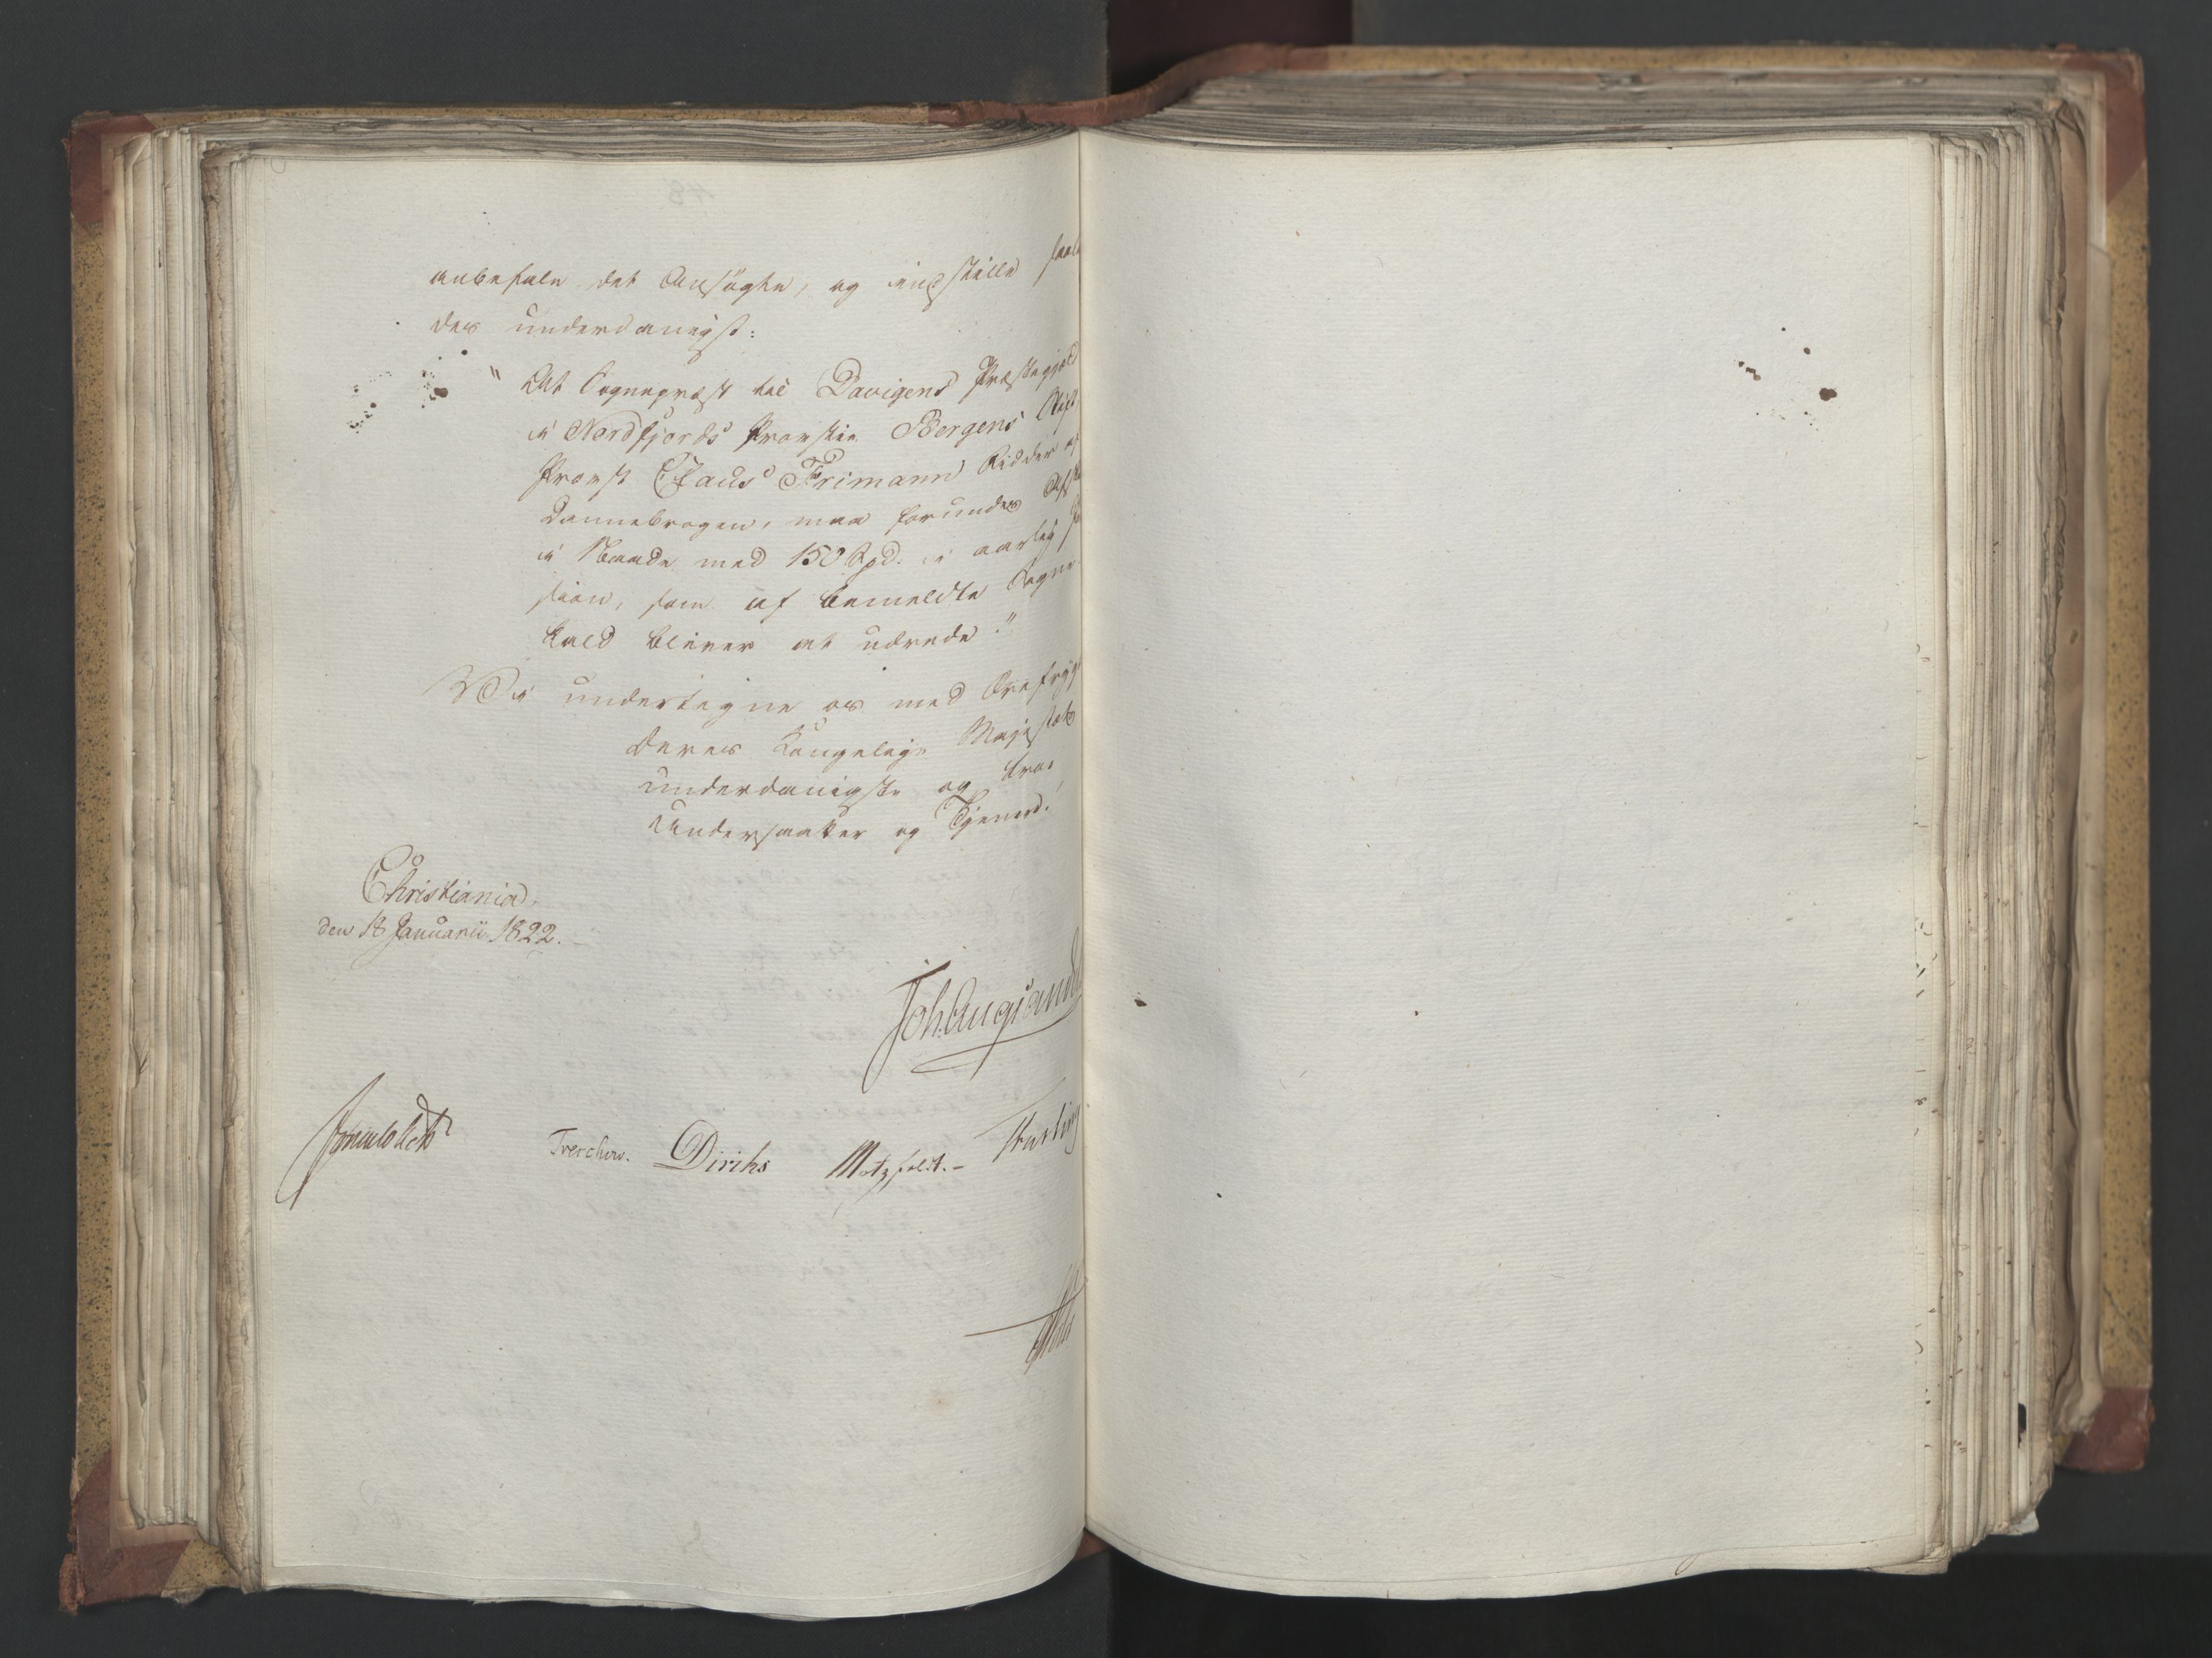 anbefale det Ansøgte, og indstille saale
des underdanigst:
" At Sognepræst til Davigens Præstegjæld
i Nordfjords Provstie Bergens Stift
Provst Claus Frimann Ridder af
Dannebrogen, maa forundes Afsk
i Naade med 150 Spd. i aarlig Pen
sion, som af bemeldte Sogne
kald bliver at udrede."
Vi undertegne os med Ærefrygt
Deres Kongelige Majestæts
underdanigste og troe
Undersaatter og Tjenere.
Christiania,
den 18 Januarii 1822.
Joh. Aug. Sande
Sommerhielm
Treschow. Diriks Motzfeldt. -